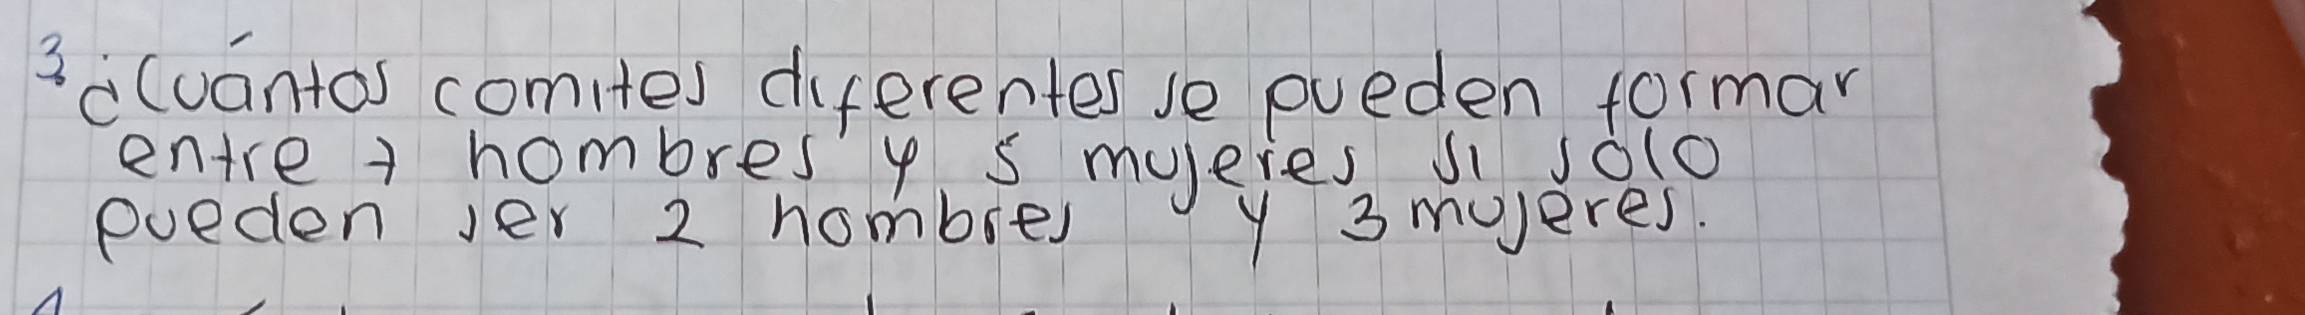 3 ¿Cuántos comites diferentes se pueden formar
entre 7 hombres y 5 mujeres si solo
pueden ser 2 hombres y 3 mujeres.